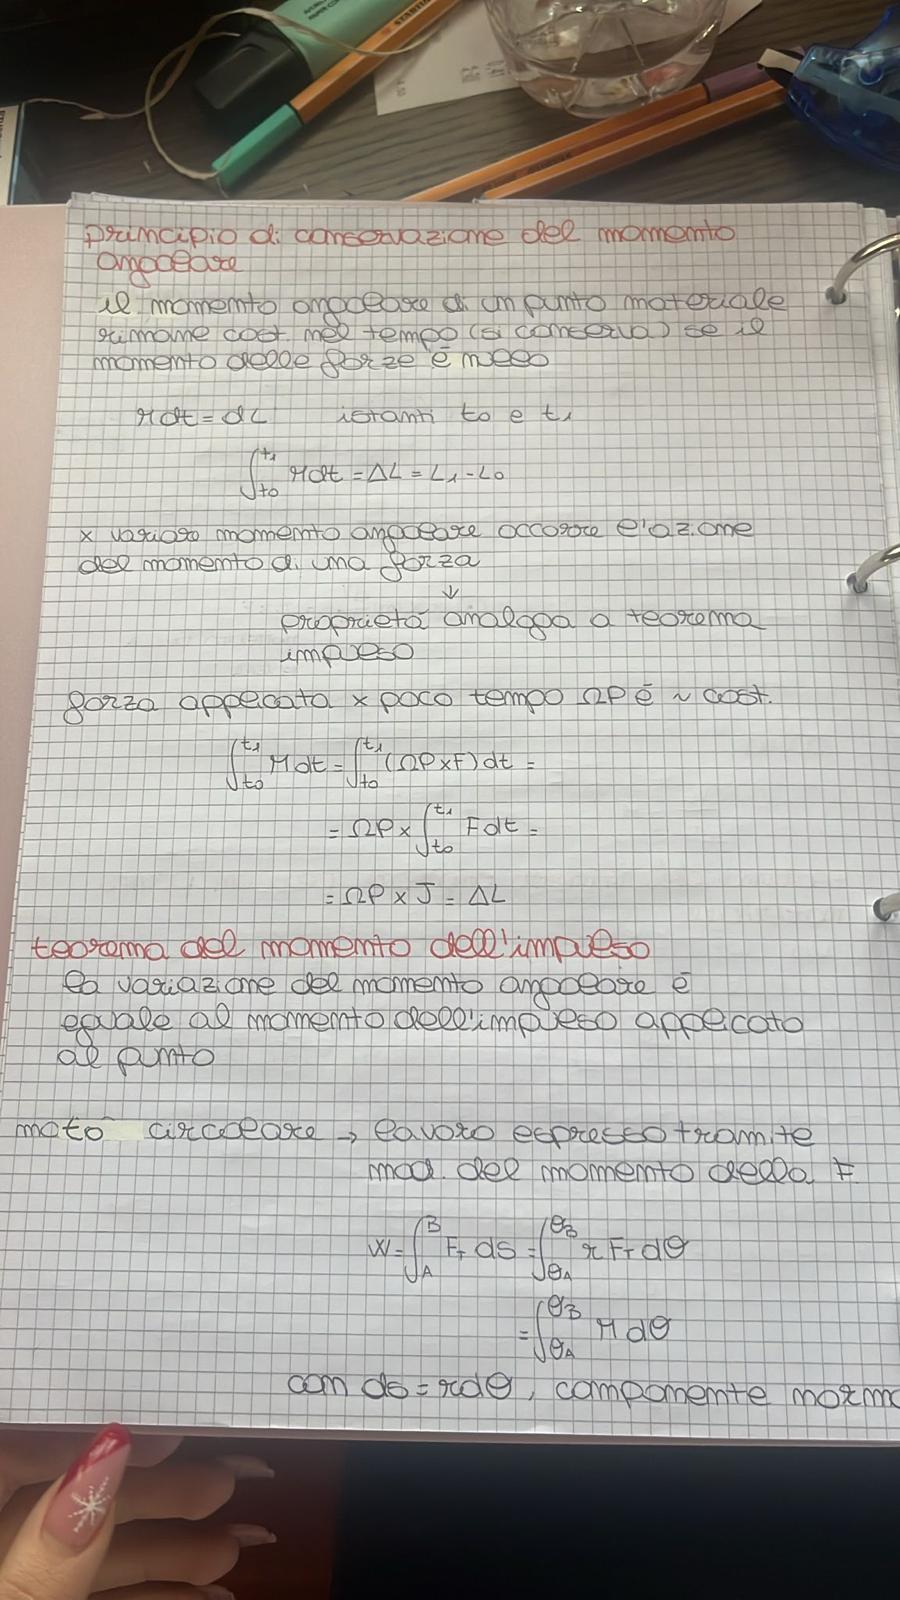 principio di conservazione del momento
angolare
il momento angolare di un punto materiale
rimane cost. nel tempo (si conserva) se il
momento delle forze è nullo
Mdt = dL istanti t₀ e t₁
∫_{t₀}^{t₁} Mdt = ΔL = L₁ - L₀
x variare momento angolare occorre l'azione
del momento di una forza
↓
proprietà analoga a teorema
impulso
forza applicata x poco tempo ΩP è ~ cost.
∫_{t₀}^{t₁} Mdt = ∫_{t₀}^{t₁} (ΩP x F) dt =
= ΩP x ∫_{t₀}^{t₁} F dt =
= ΩP x J = ΔL
teorema del momento dell'impulso
la variazione del momento angolare è
eguale al momento dell'impulso applicato
al punto
moto circolare → lavoro espresso tramite
mod. del momento della F
W = ∫_A^B F_T ds = ∫_{θA}^{θB} r F_T dθ
= ∫_{θA}^{θB} M dθ
con ds = rdθ, componente norma